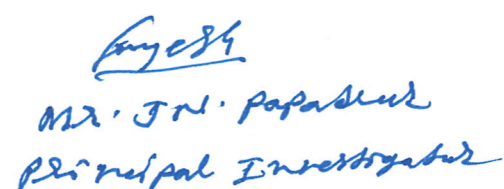 Mr. J.N. Papadkur
Principal Investigator